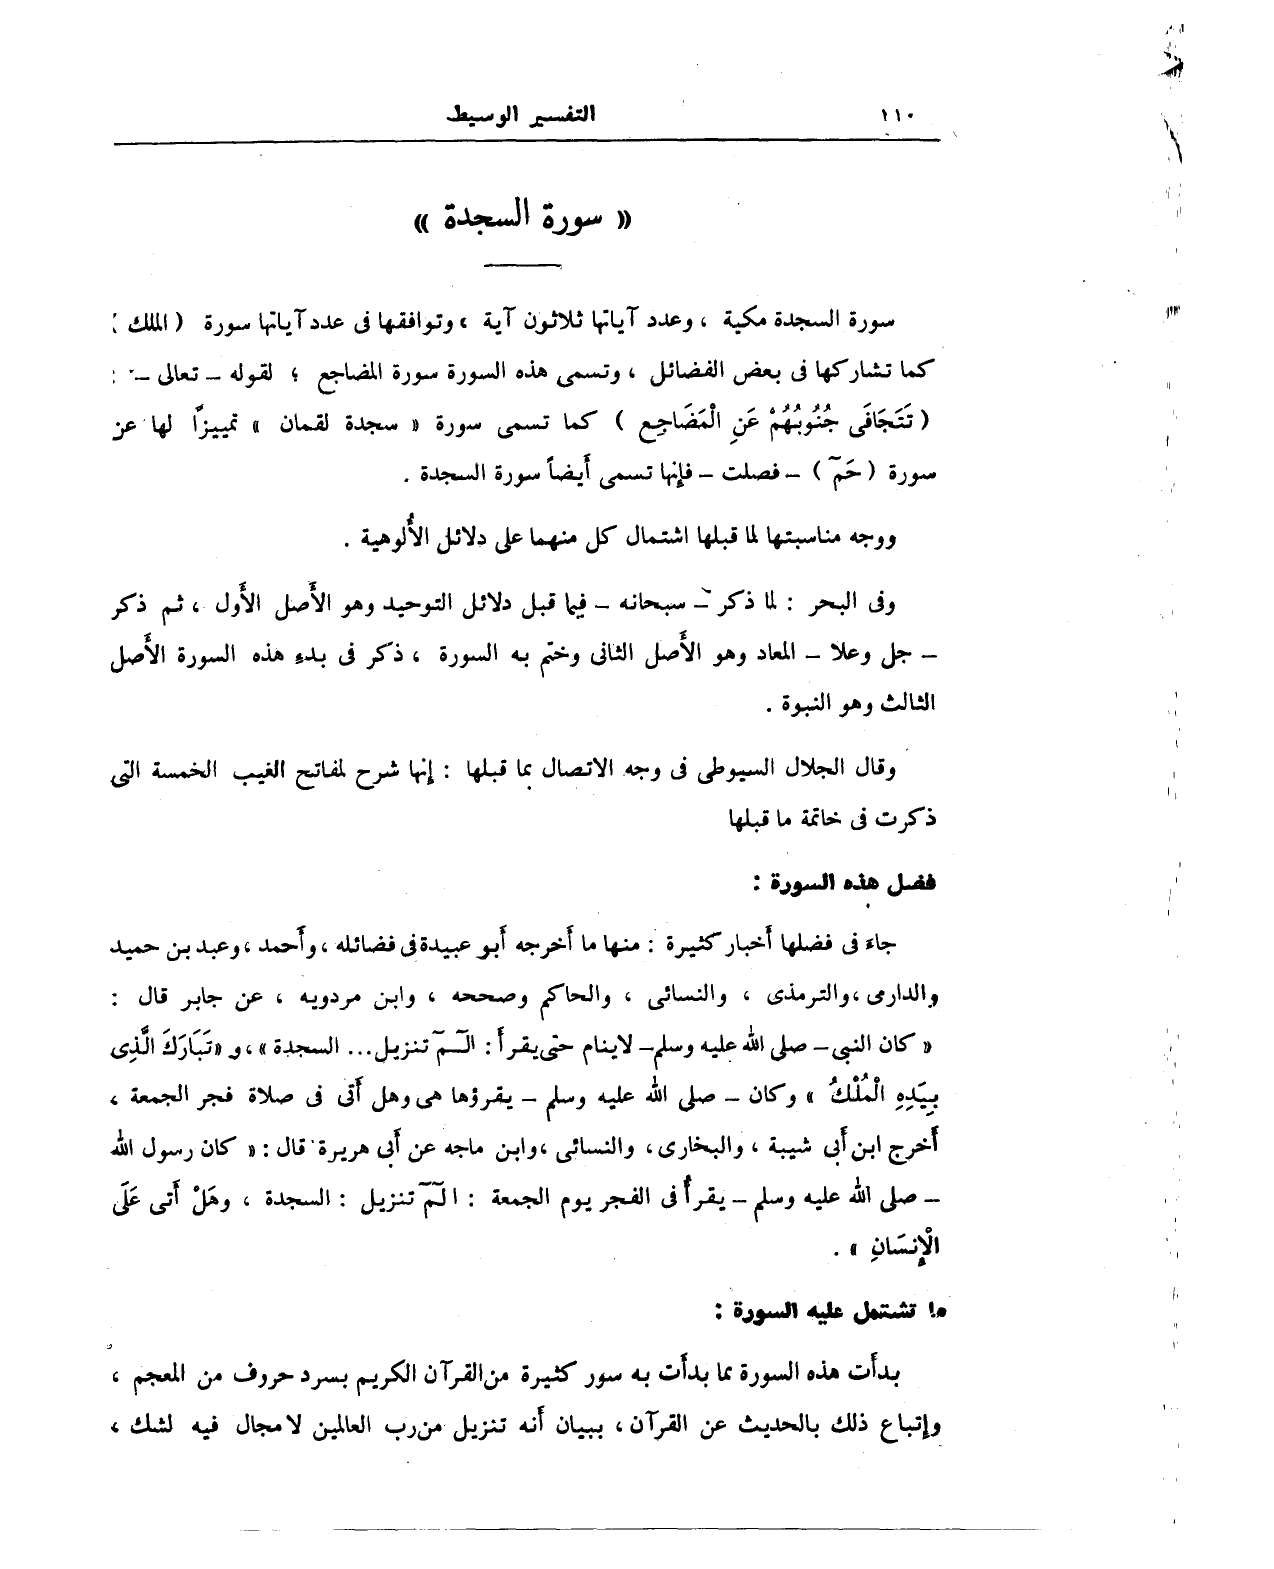 ١١٠ التفسير الوسيط
« سورة السجدة »
سورة السجدة مكية ، وعدد آياتها ثلاثون آية ، وتوافقها فى عدد آياتها سورة ( الملك )
كما تشاركها فى بعض الفضائل ، وتسمى هذه السورة سورة المضاجع ؛ لقوله – تعالى – :
( تَتَجَافَى جُنُوبُهُمْ عَنِ الْمَضَاجِعِ ) كما تسمى سورة « سجدة لقمان » تمييزًا لها عن
سورة ( حَمٓ ) – فصلت – فإنها تسمى أيضاً سورة السجدة .
ووجه مناسبتها لما قبلها اشتمال كل منهما على دلائل الأُلوهية .
وفى البحر : لما ذكر – سبحانه – فيما قبل دلائل التوحيد وهو الأَصل الأَول ، ثم ذكر
– جل وعلا – المعاد وهو الأَصل الثانى وختم به السورة ، ذكر فى بدء هذه السورة الأَصل
الثالث وهو النبوة .
وقال الجلال السيوطى فى وجه الاتصال بما قبلها : إنها شرح لمفاتح الغيب الخمسة التى
ذكرت فى خاتمة ما قبلها
فضل هذه السورة :
جاءَ فى فضلها أَخبار كثيرة : منها ما أَخرجه أَبو عبيدة فى فضائله ، وأَحمد ، وعبد بن حميد
والدارمى ، والترمذى ، والنسائى ، والحاكم وصححه ، وابن مردويه ، عن جابر قال :
« كان النبى – صلى الله عليه وسلم – لاينام حتى يقرأَ : الٓمٓ تنزيل ... السجدة » ، و « تَبَارَكَ الَّذِى
بِيَدِهِ الْمُلْكُ » وكان – صلى الله عليه وسلم – يقرؤها هى وهل أَتى فى صلاة فجر الجمعة ،
أَخرج ابن أَبى شيبة ، والبخارى ، والنسائى ، وابن ماجه عن أَبى هريرة قال : « كان رسول الله
– صلى الله عليه وسلم – يقرأُ فى الفجر يوم الجمعة : الٓمٓ تنزيل : السجدة ، وهَلْ أَتى عَلَى
الْإِنسَانِ » .
ما تشتمل عليه السورة :
بدأَت هذه السورة بما بدأَت به سور كثيرة من القرآن الكريم بسرد حروف من المعجم ،
وإتباع ذلك بالحديث عن القرآن ، ببيان أَنه تنزيل من رب العالمين لا مجال فيه لشك ،